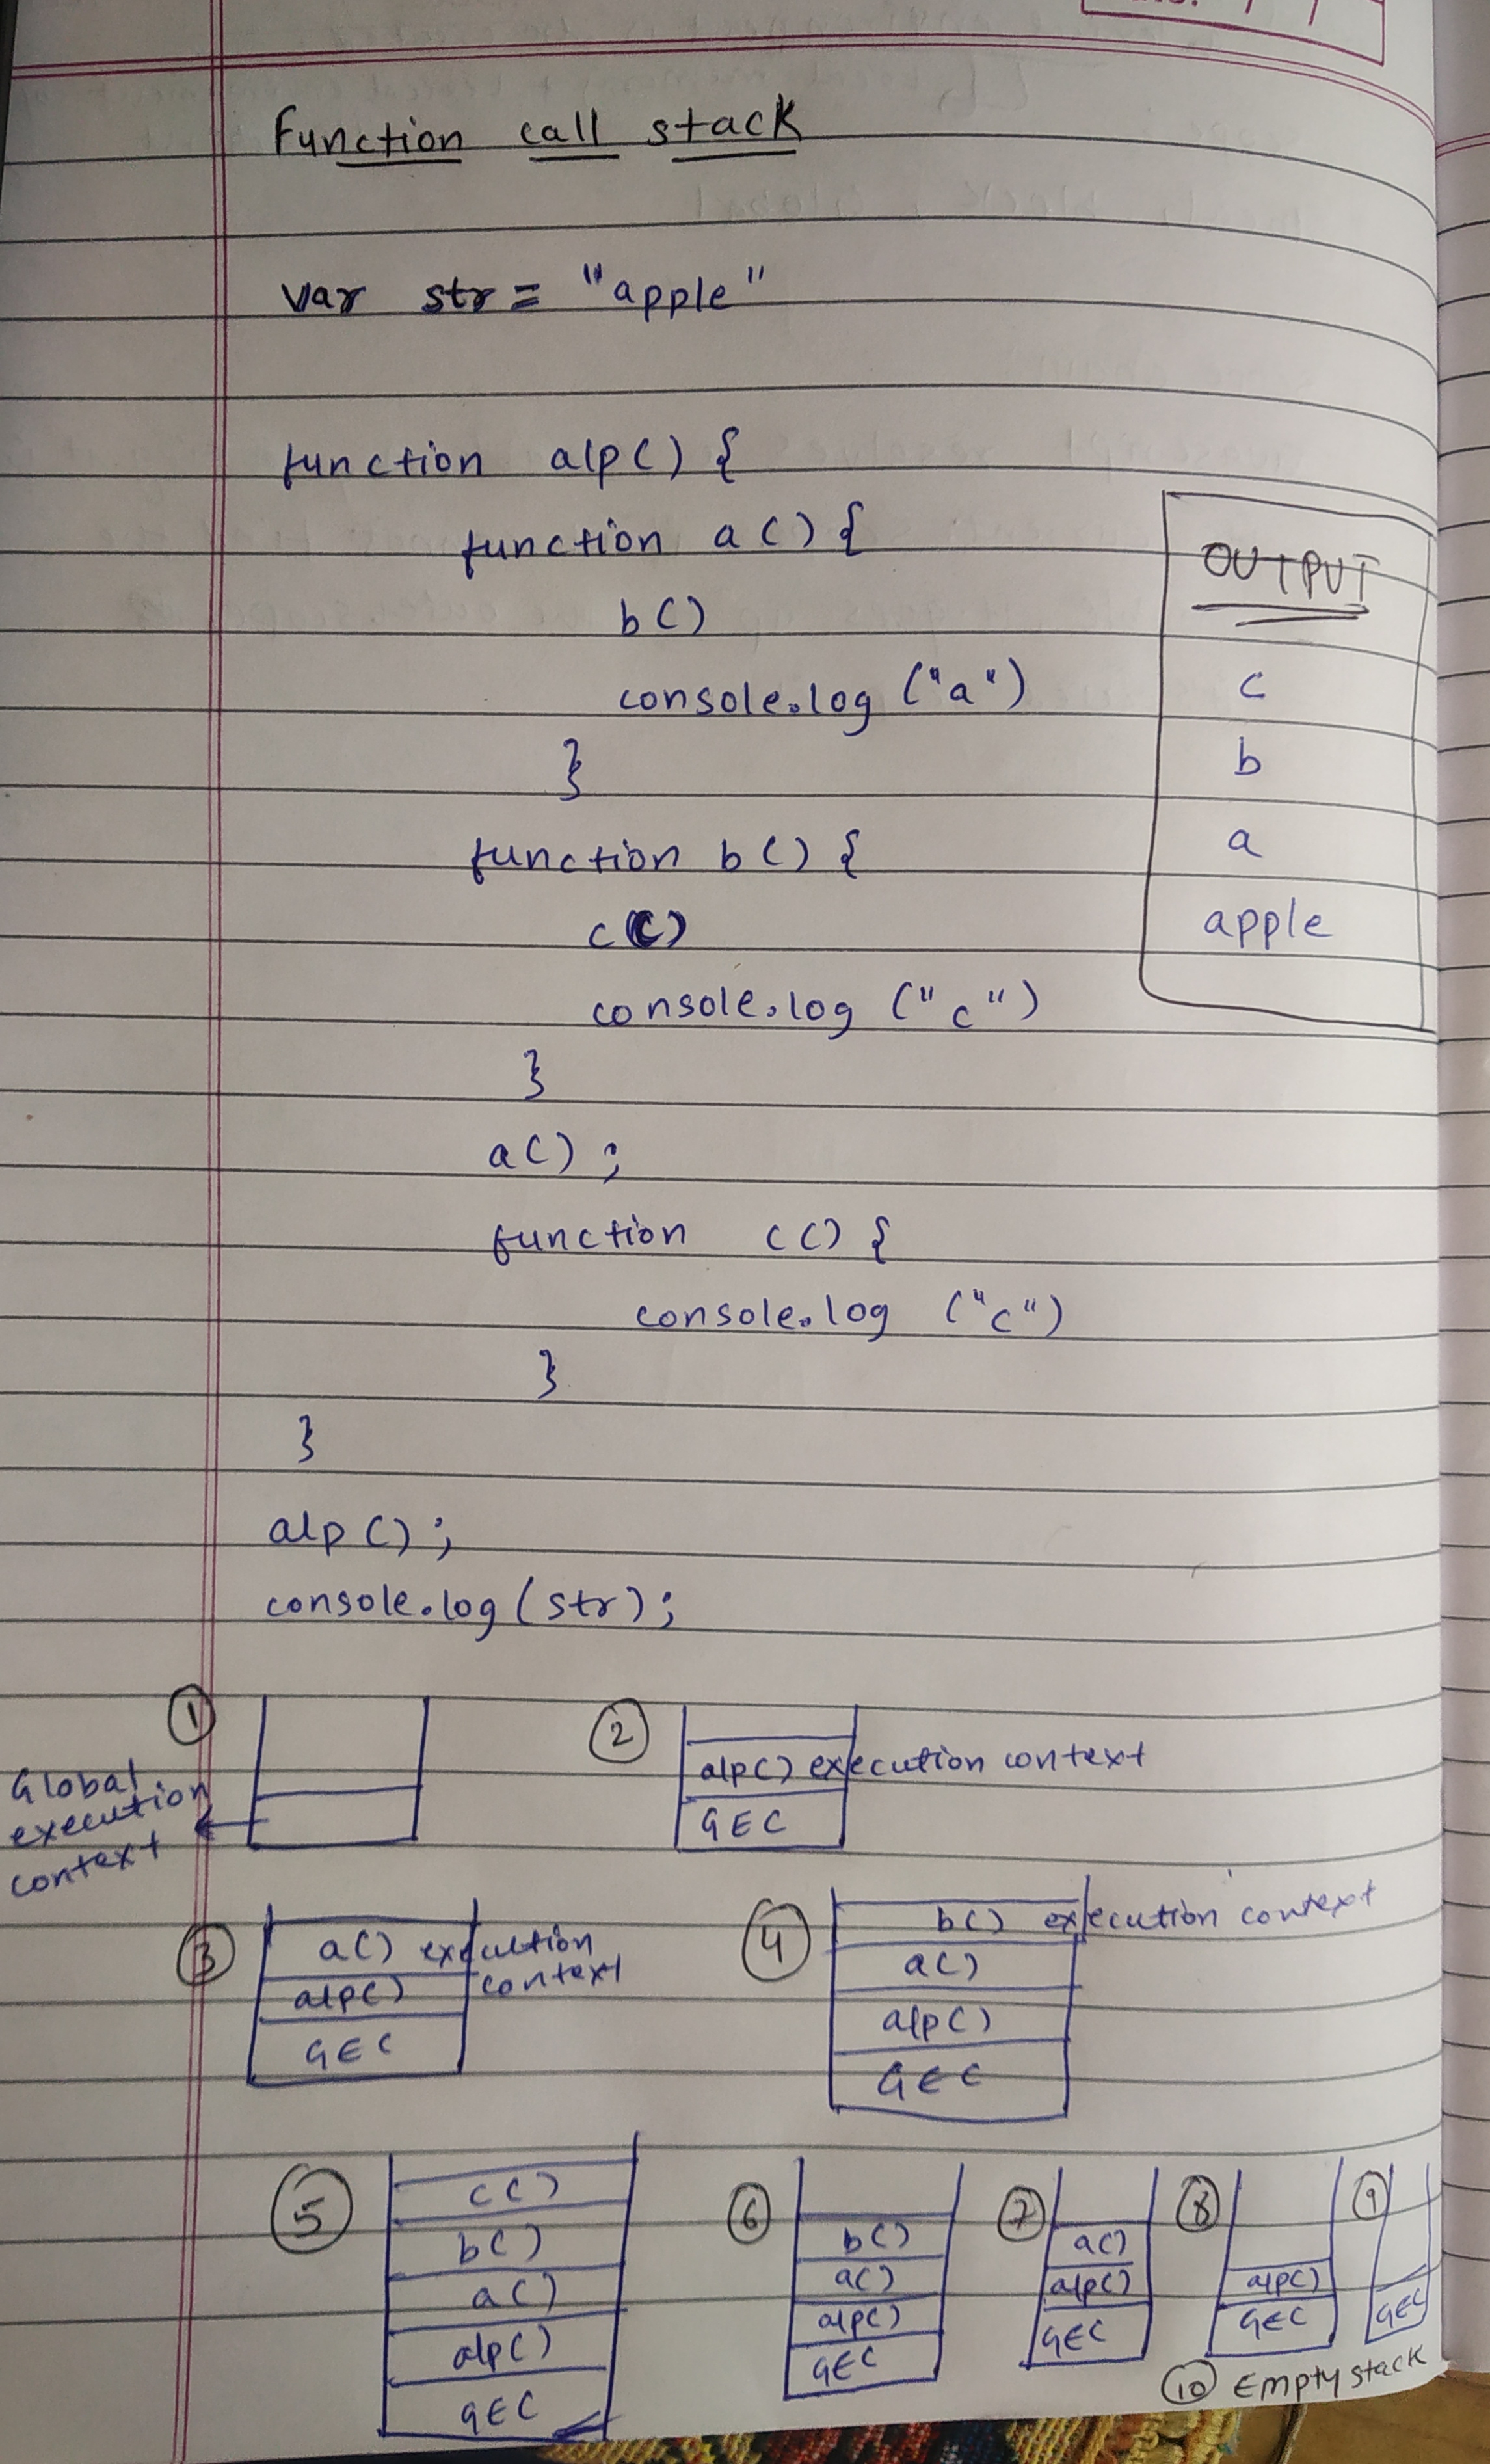 Function call stack
var str = "apple"
function alp() {
function a() {
b()
console.log ("a")
}
function b() {
c()
console.log ("c")
}
a();
function c() {
console.log ("c")
}
}
alp();
console.log(str);
OUTPUT
c
b
a
apple
1
Global
execution
context
2
alp() execution context
GEC
3
a() execution
context
alp()
GEC
4
b() execution context
a()
alp()
GEC
5
c()
b()
a()
alp()
GEC
6
b()
a()
alp()
GEC
7
a()
alp()
GEC
8
alp()
GEC
9
GEC
10 Empty stack